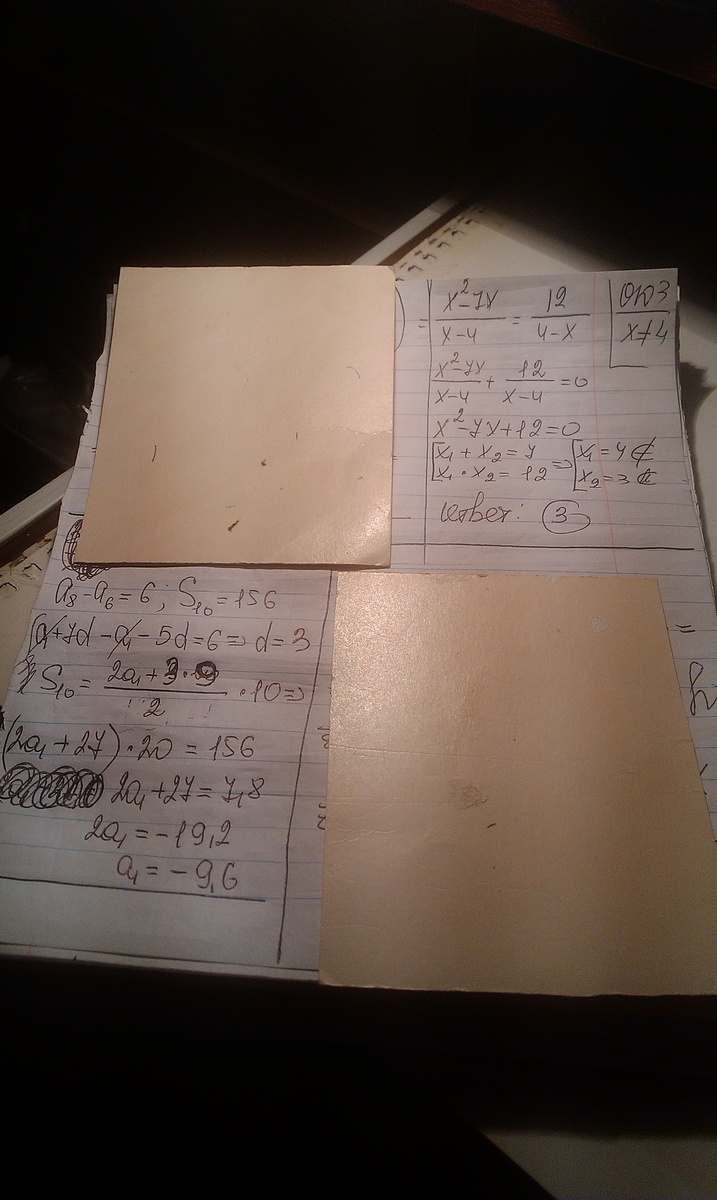 x²-7x / x-4 = 12 / 4-x | ОДЗ x≠4
x²-7x / x-4 + 12 / x-4 = 0
x²-7x+12=0
[x₁ + x₂ = 7 => [x₁ = 4 ∉
[x₁ · x₂ = 12 [x₂ = 3 ∈
Ответ: 3
a₈-a₆=6; S₁₀=156
a₁+7d-a₁-5d=6 => d=3
S₁₀ = 2a₁+3·9 / 2 · 10 =>
(2a₁+27)·20 = 156
2a₁+27=7,8
2a₁=-19,2
a₁=-9,6